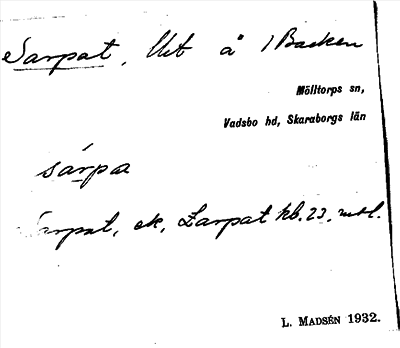 Sarpat, Ut å 1 Backen
Mölltorps sn,
Vadsbo hd, Skaraborgs län
sárpa
Sarpat, ek, Larpat kb. 23.
L. MADSÉN 1932.